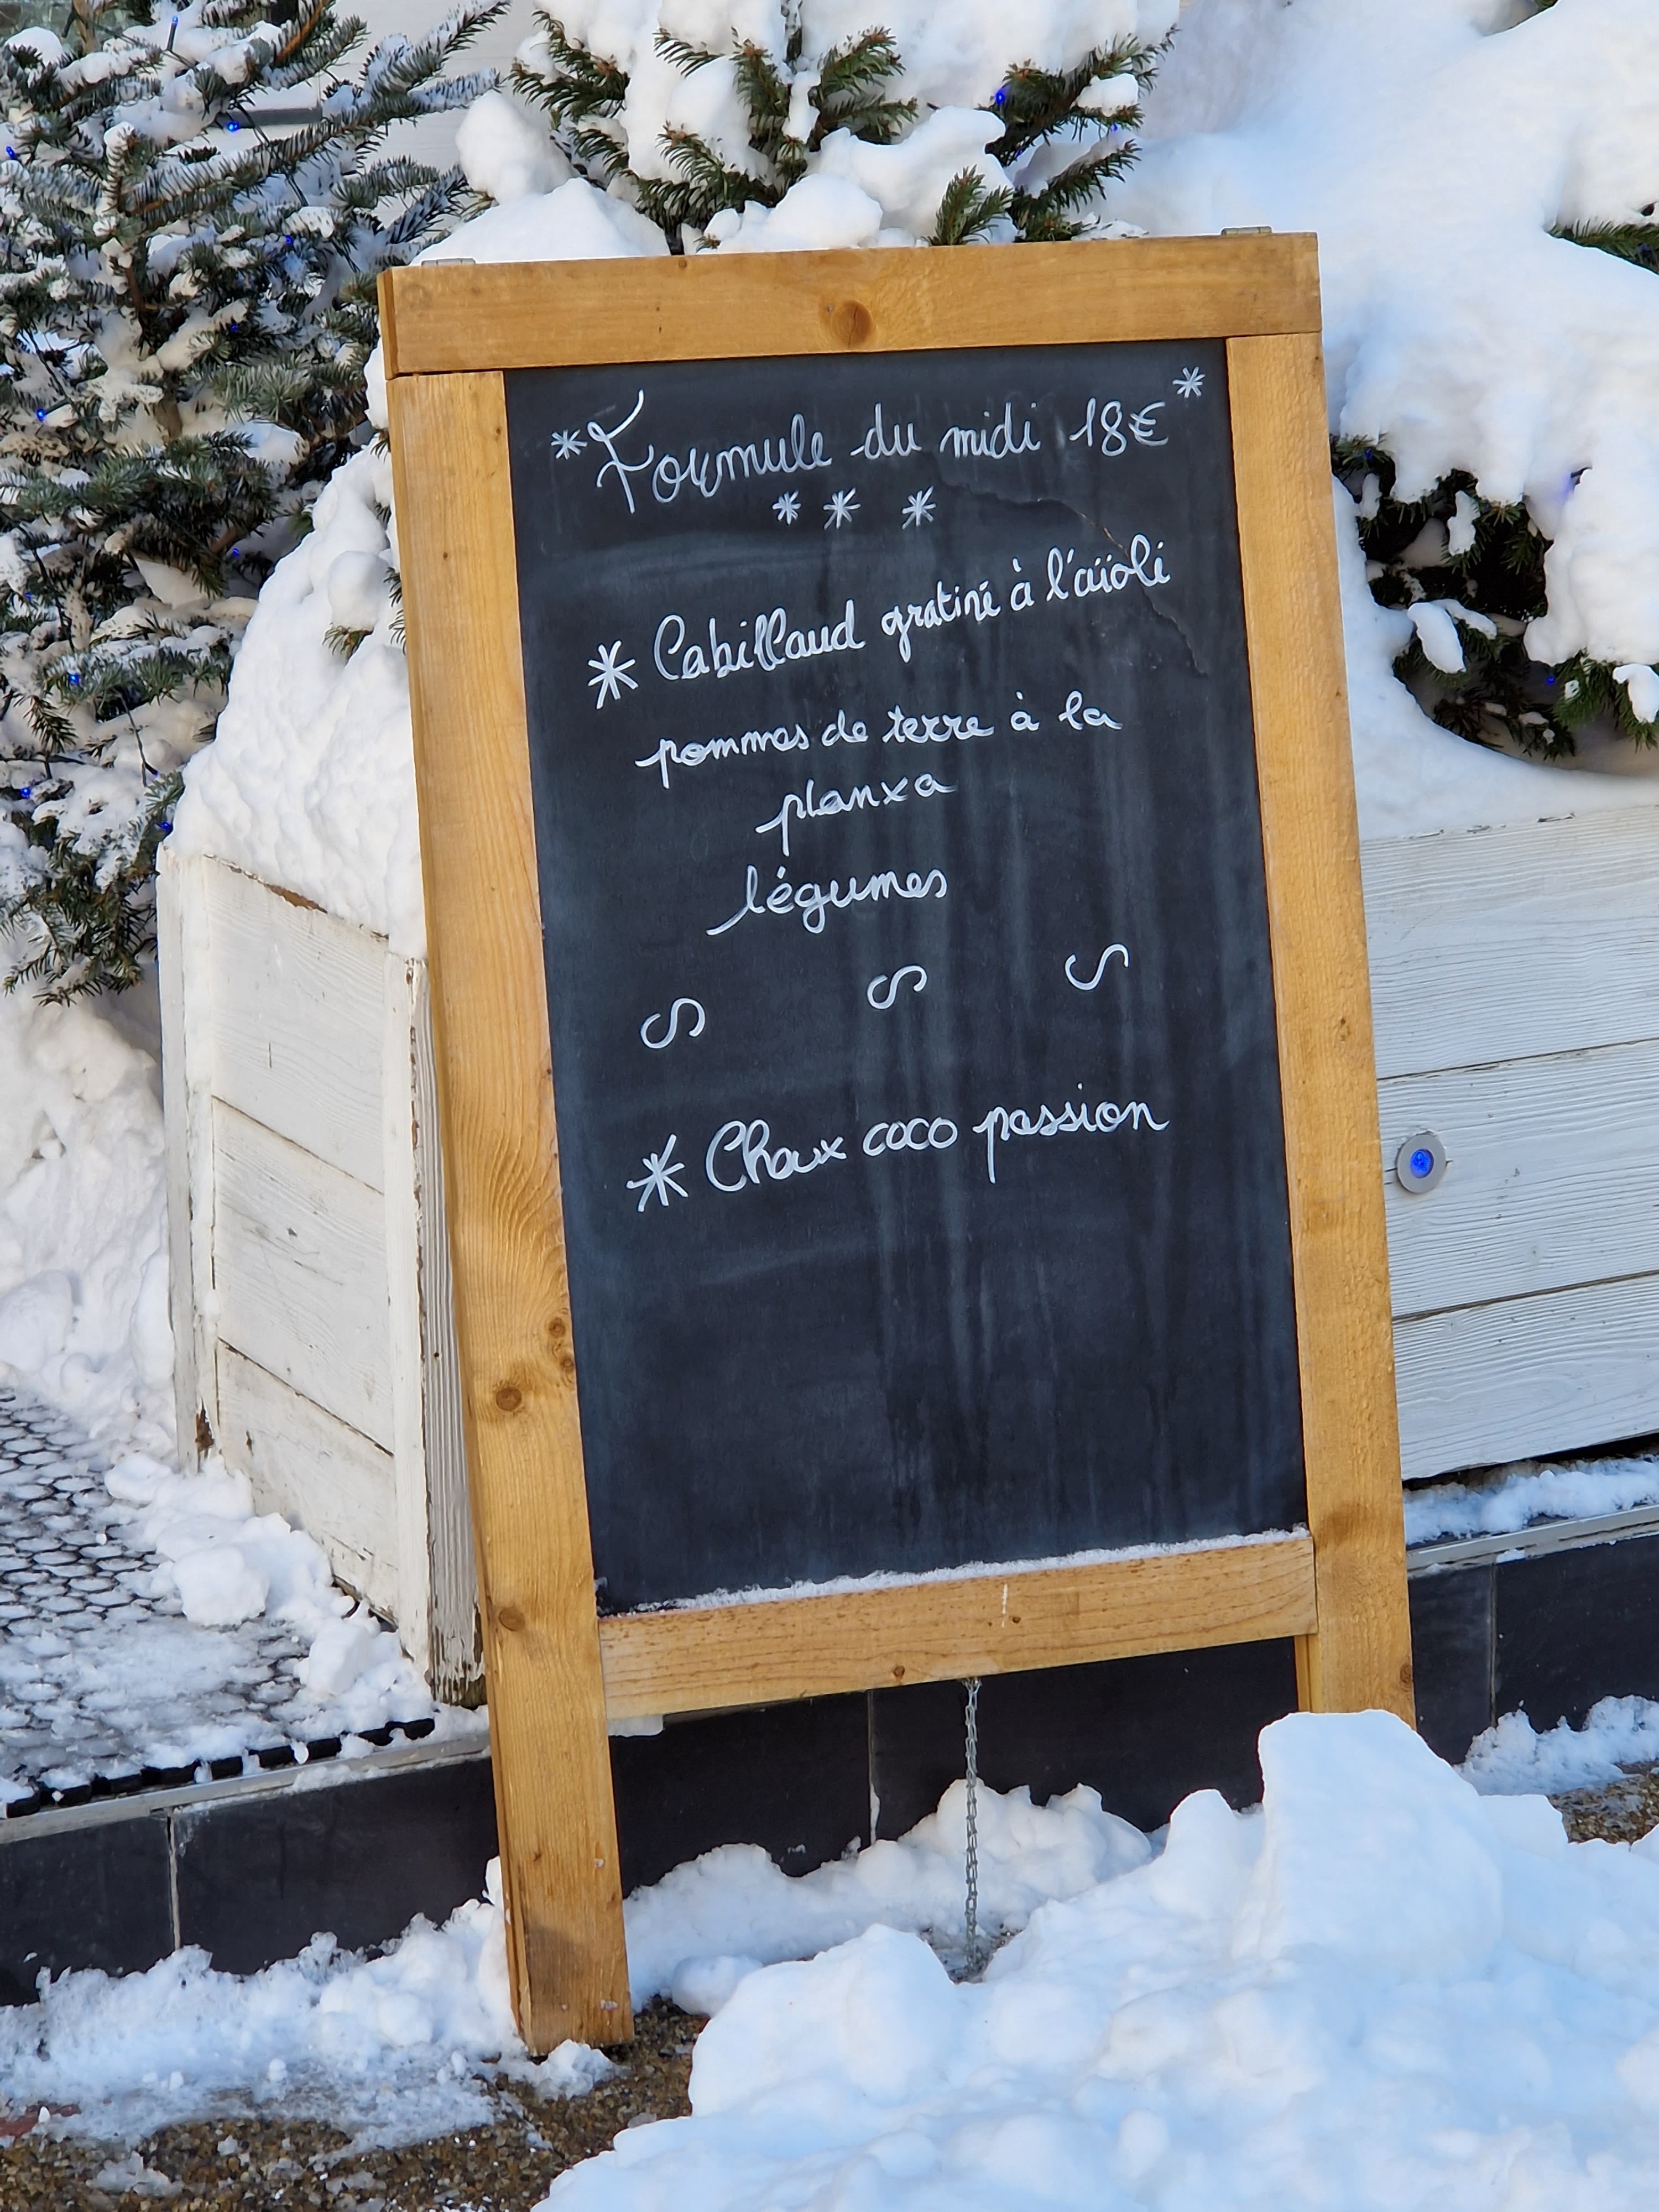 *Formule du midi 18€*
* * *
* Cabillaud gratiné à l'aïoli
pommes de terre à la
planxa
légumes
* Choux coco passion